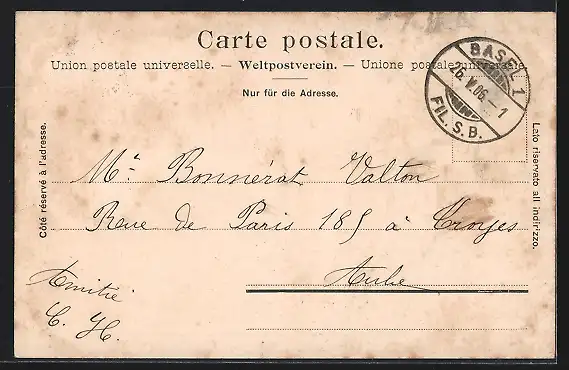 Carte postale.
Union postale universelle. — Weltpostverein. — Unione postale universale.
Nur für die Adresse.
BASEL 1
26.V.06.-1
FIL. S. B.
Côté réservé à l'adresse.
Lato riservato all indirizzo.
Mr. Bonnérat Valton
Rue de Paris 185 à Troyes
Aube
Amitié
C. H.